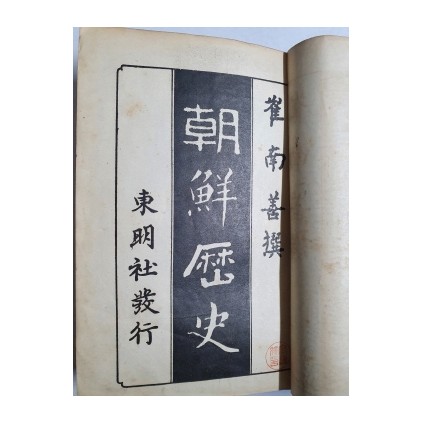 崔南善撰
朝鮮歷史
東明社發行